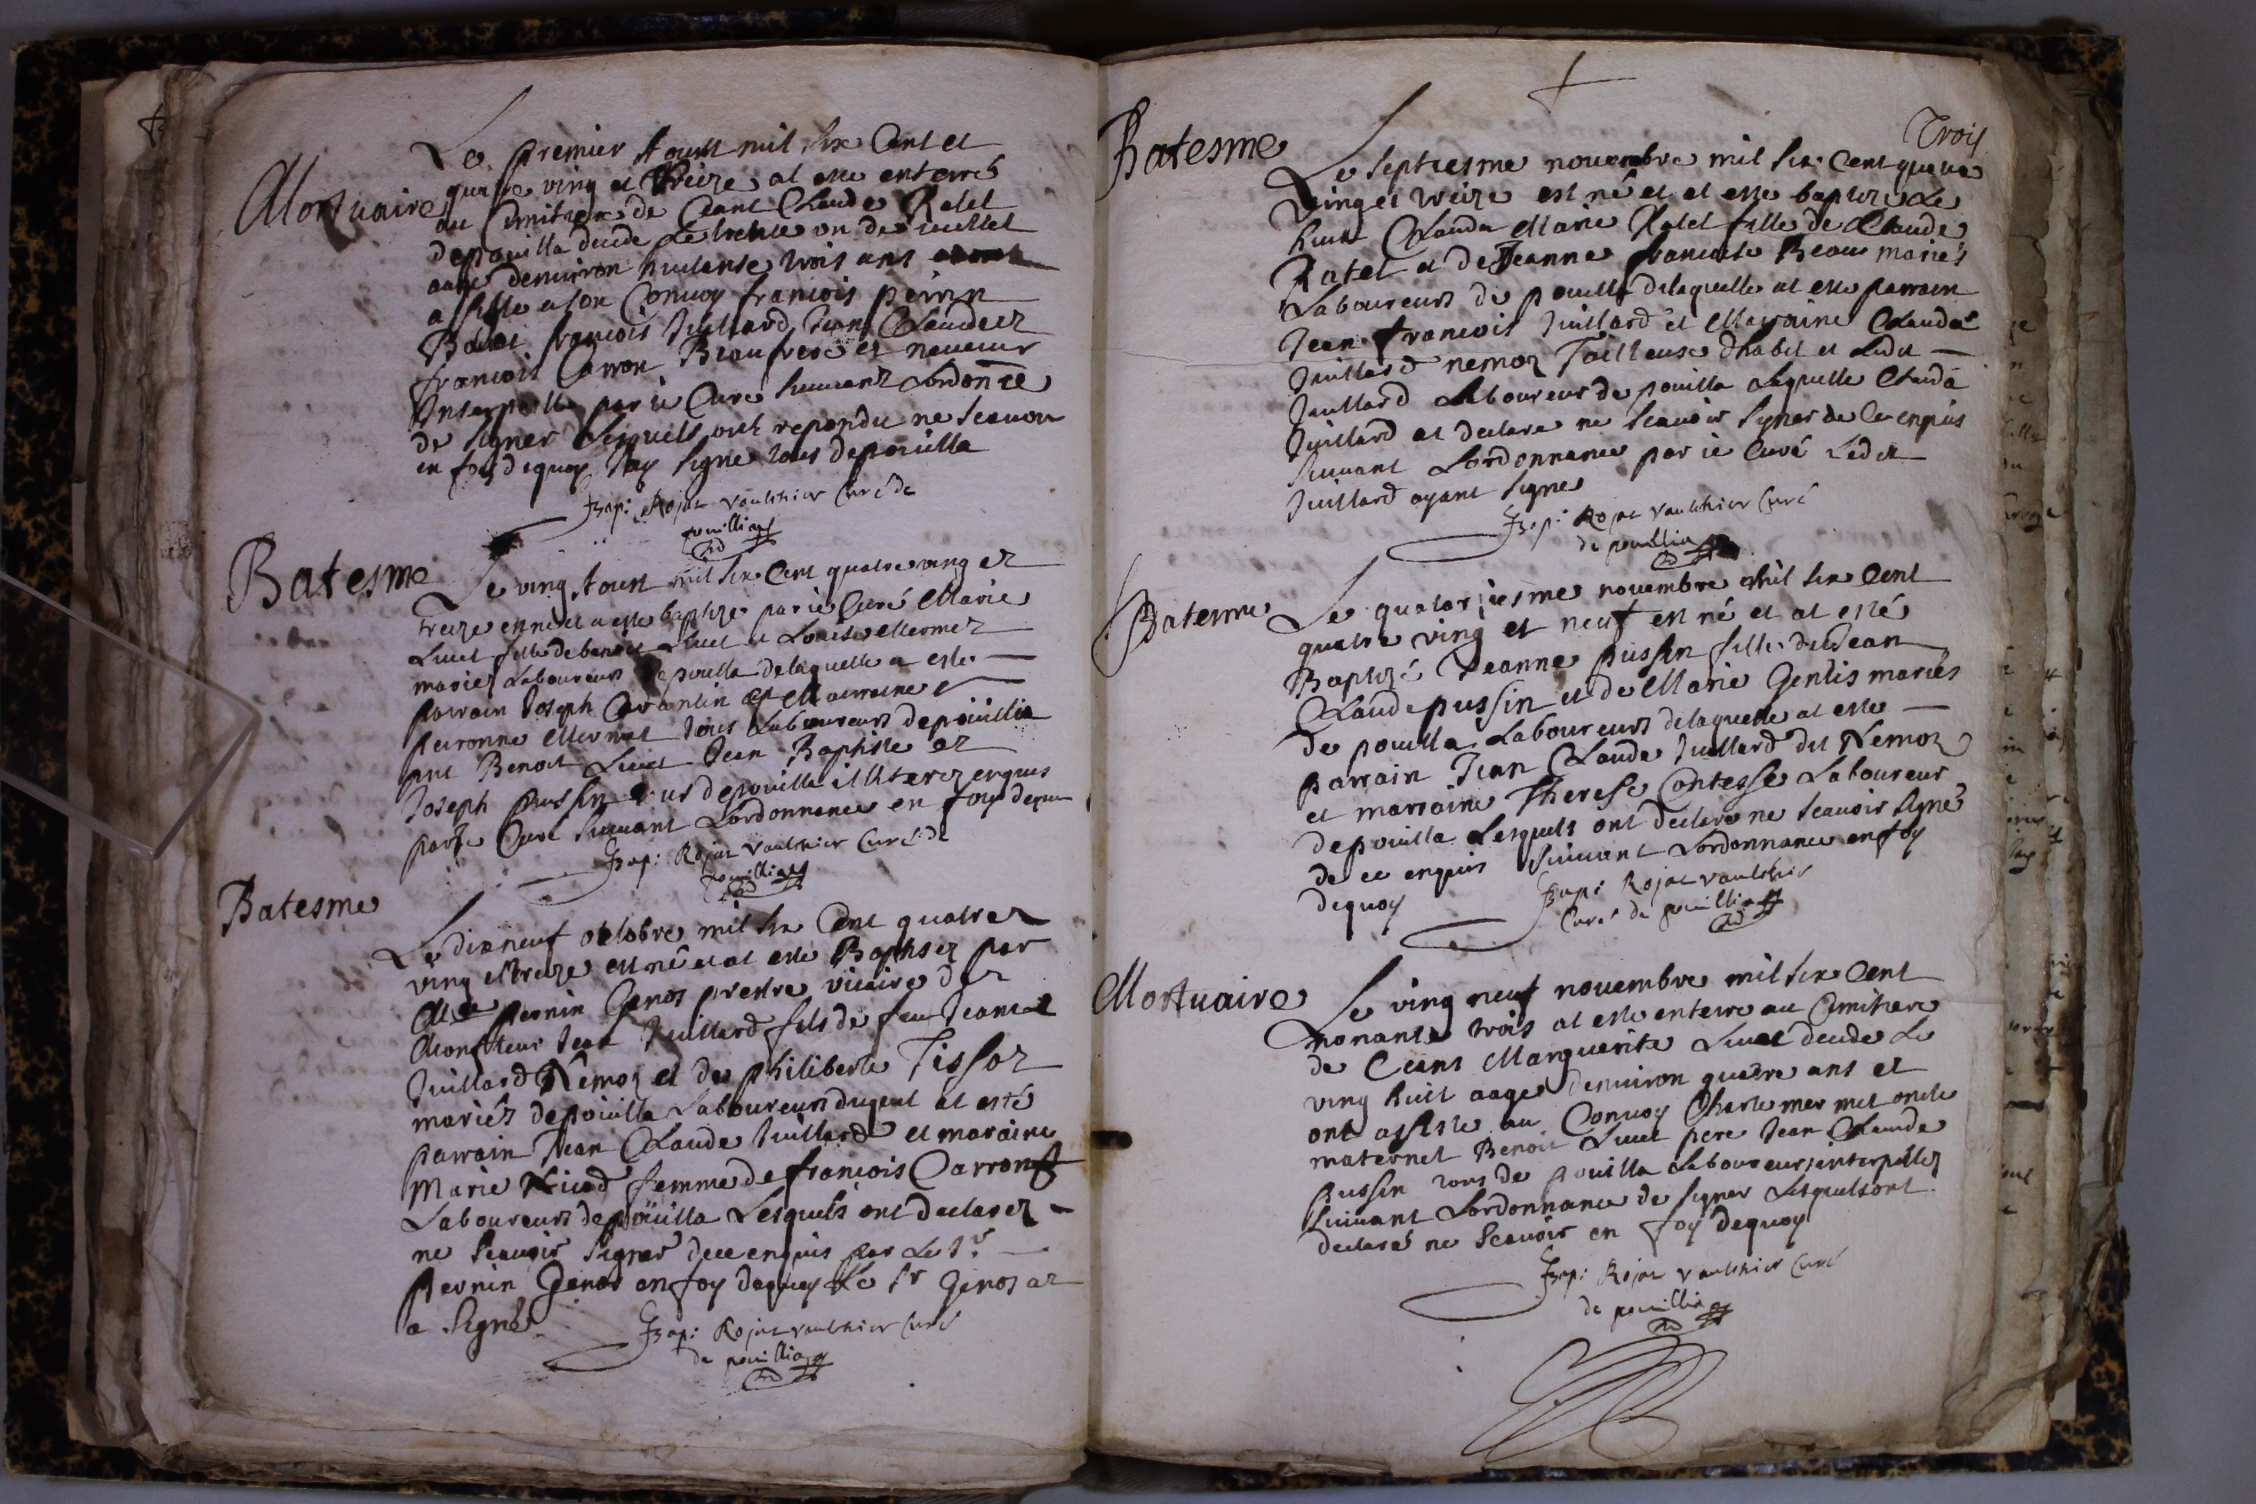 Mortuaire
Le premier Aoust mil six Cent et
quatre ving et treize at este enterré
au Cimitiere de Ceant Claude Ratel
depouilla decede Le trente un de Juillet
aagé denviron huitante trois ans
assiste a son Convoy francois perrin
francois Juillard Jean Claude et
francois Carron Beaufrere et neveur
Interpelle par ie Cure suivant Lordonce
de signer Lesquels ont repondu ne scavoir
en foy dequoy Jay signe tous depouilla
Bap: Rojat Vaulthier Curé de
pouillia
Batesme
Le ving Aoust mil six Cent quatre ving et
treize est né et a este baptize par ie Curé Marie
Livet fille de benoit Livet et Louise Mermet
mariez Laboureurs depouilla delaquelle a este
parrain Joseph Carantin et Marraine
peronne Mermet tous Laboureurs depouillia
pnt Benoit Livet Jean Baptiste et
Joseph pussin tous depouilla illiterez enquis
par ie Cure suivant Lordonnance en foy dequoy
Bap: Rojat Vaulthier Curé de
pouillia
Batesme
Le dixneuf octobre mil six Cent quatre
ving et treize est né et at este Baptisez par
Mre pernin Genos prestre vicaire de
Monsieur Jean Juillard fils de feu Jean
Juillard Nemoz et de philiberte Tissot
mariés depouilla Laboureurs duquel at esté
parrain Jean Claude Juillard et maraine
Marie Nicod femme de francois Carron
Laboureurs depouilla Lesquels ont declarez
ne scavoir signer dece enquis par Le Sr
pernin Genos en foy dequoy Le Sr Genos at
a signé
Bap: Rojat Vaulthier Curé
de pouillia
Trois
Batesme
Le septiesme novembre mil six Cent quatre
Ving et treize est né et at este baptize Le
huit Clauda Marie Ratel fille de Claude
Ratel et de Jeanne francoise Beau mariés
Laboureurs de pouilla delaquelle at este parrain
Jean francois Juillard et Maraine Clauda
Juillard nemoz Tailleuse dhabit et Ledit
Juillard Laboureur de pouilla Laquelle Clauda
Juillard at declare ne scavoir signer de Ce enquis
suivant Lordonnance par ie Curé Ledit
Juillard ayant signe
Bap: Rojat Vaulthier Curé
de pouillia
Batesme
Le quatorziesme novembre mil six Cent
quatre ving et neuf est né et at esté
Baptizé Jeanne pussin fille de Jean
Claude pussin et de Marie Gentis mariés
de pouilla Laboureurs delaquelle at este
parrain Jean Claude Juillard dit Nemoz
et marraine Therese Contesse Laboureur
depouilla Lesquels ont declare ne scavoir signé
de ce enquis suivant Lordonnance en foy
dequoy
Bap: Rojat Vaulthier
Curé de pouillia
Mortuaire
Le ving neuf novembre mil six Cent
nonante trois at este enterre au Cimitiere
de Ceans Marguerite Livet decede Le
ving huit aage denviron quatre ans et
ont assiste au Convoy Charle mermet oncle
maternel Benoit Livet pere Jean Claude
pussin tous de pouilla Laboureurs interpellez
suivant Lordonnance de signer Lesquels ont
declaré ne scavoir en foy dequoy
Bap: Rojat Vaulthier Curé
de pouillia